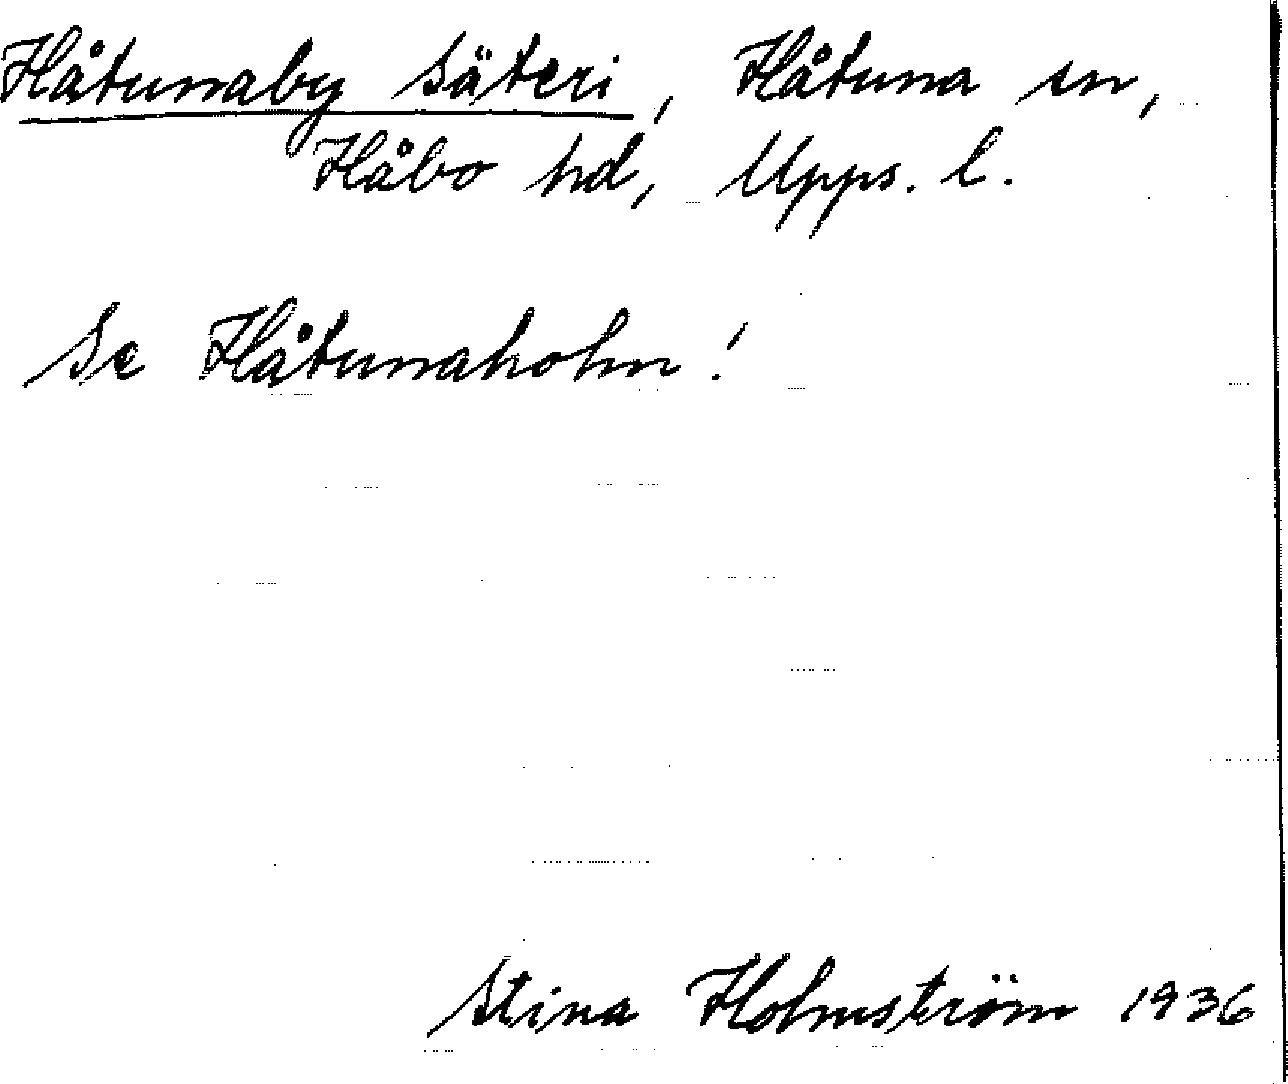 Håtunaby säteri, Håtuna sn,
Håbo hd, Upps. l.
Se Håtunaholm!
Stina Holmström 1936